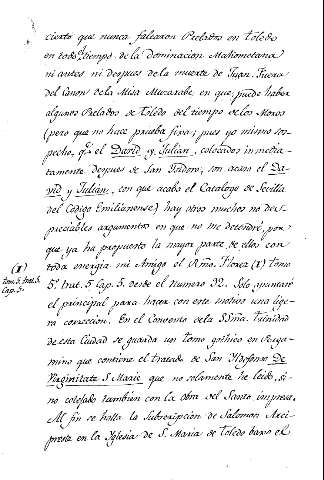 cierto que nunca faltaron Prelados en Toledo
en todo el tiempo de la dominacion Mahometana
ni antes ni despues de la muerte de Juan. Fuera
del Canon de la Misa Muzarabe en que puede haber
algunos Prelados de Toledo del tiempo de los Moros
(pero que no hace prueba fixa; pues yo mismo sos-
pecho, q.e el David y Julian, colocados inmedia-
tamente despues de San Isidoro, son acaso el Da-
vid y Julian, con que acaba el Catalogo de Sevilla
del Codigo Emilianense) hay otros muchos no des-
preciables argumentos en que no me detendré, por
que ya ha propuesto la mayor parte de ellos con
toda energia mi Amigo el Rmo. Florez (1) tomo
5.º trat. 5 Cap. 5. desde el numero 32. Solo apuntaré
el principal para hacer con este motivo una lige-
ra correccion. En el Convento de la SSma. Trinidad
de esta Ciudad se guarda un tomo gothico en Perga-
mino que contiene el tratado de San Ildefonso De
Virginitate S. Mariæ que no solamente he leido, si-
no cotejado tambien con la obra del Santo impresa.
Al fin se halla la Subscripcion de Salomon Arci-
preste en la Iglesia de S. Maria de Toledo baxo el
(1)
Tom. 5. trat. 5.
Cap. 5.